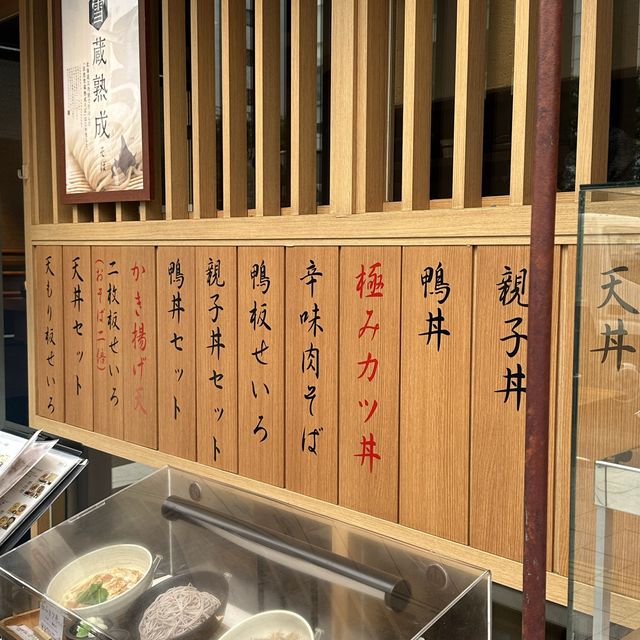 天丼
親子丼
鴨丼
極みカツ丼
辛味肉そば
鴨板せいろ
親子丼セット
鴨丼セット
かき揚げ天
二枚板せいろ
(おそば二倍)
天丼セット
天もり板せいろ
雪蔵熟成
そば